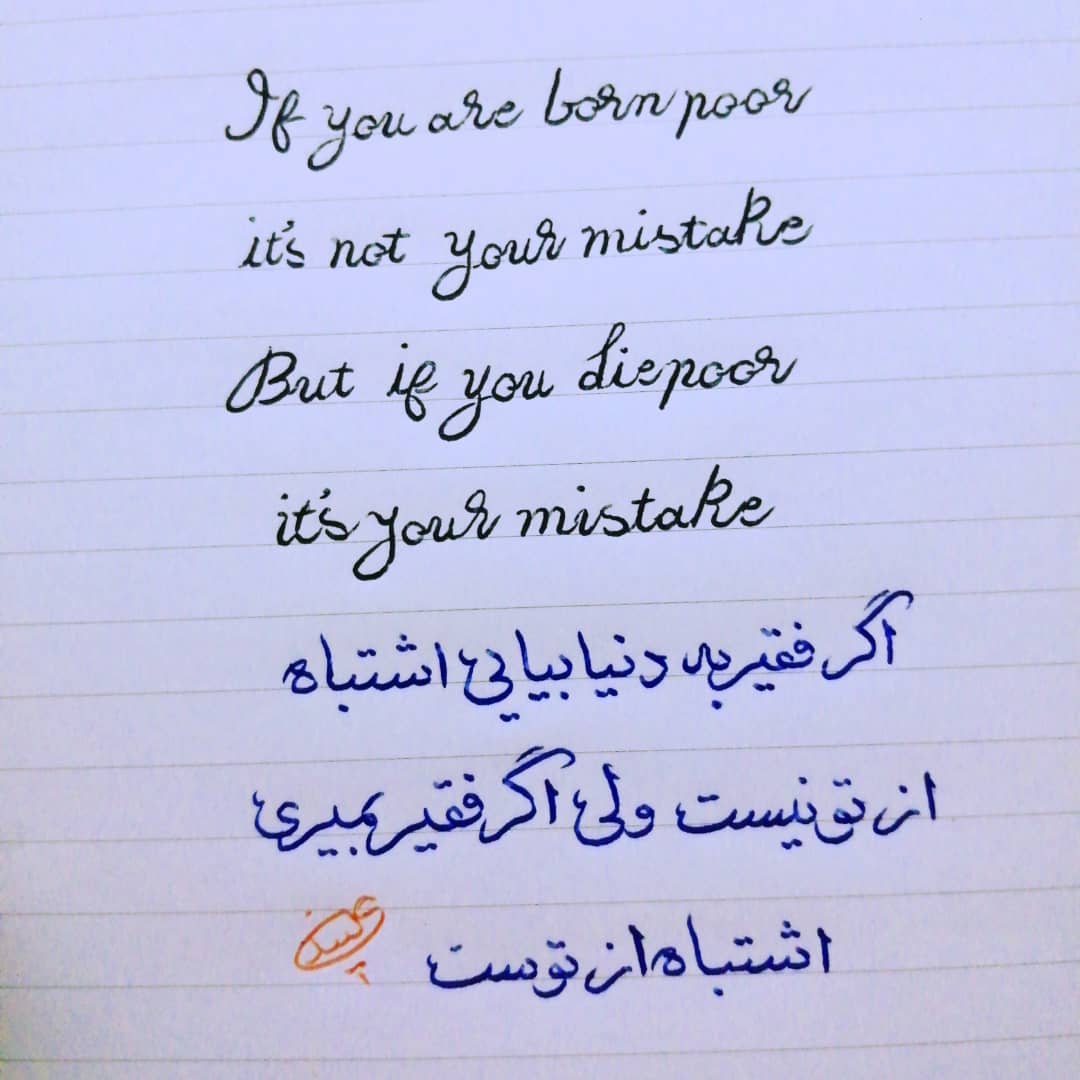 If you are born poor
it's not your mistake
But if you die poor
it's your mistake
اگر فقیر به دنیا بیایی اشتباه
از تو نیست ولی اگر فقیر بمیری
اشتباه از توست